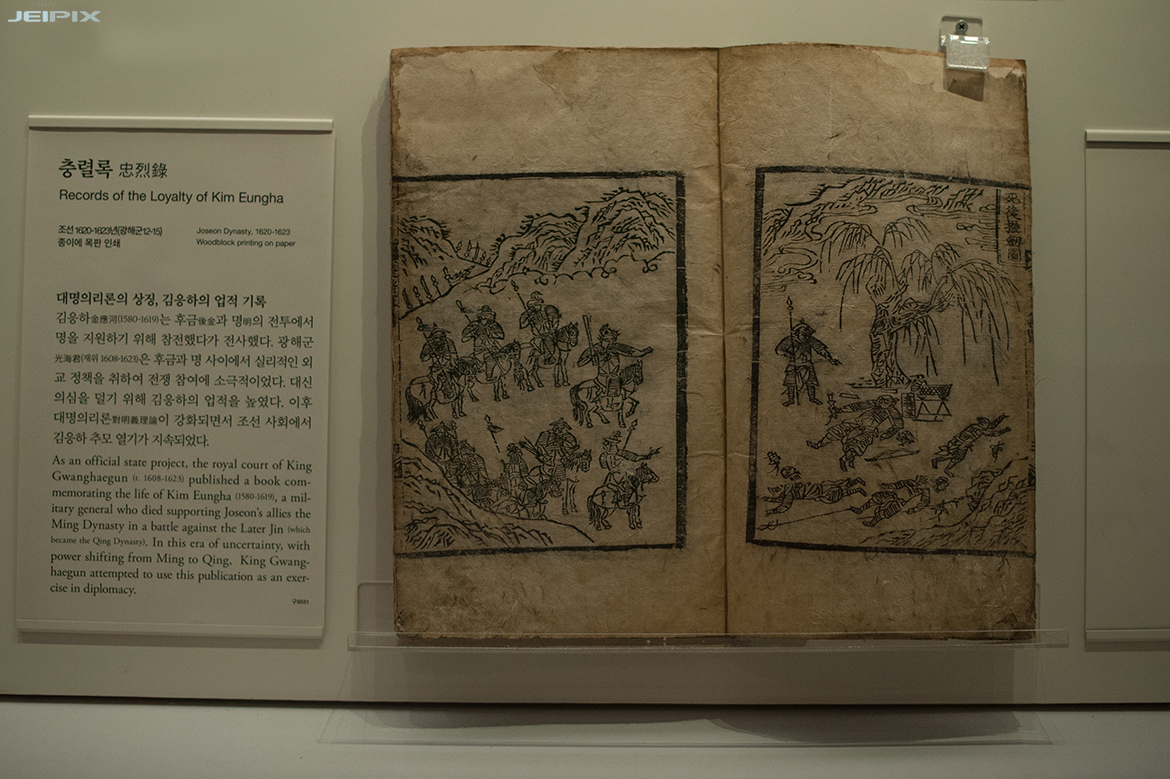 JEIPIX
충렬록 忠烈錄
Records of the Loyalty of Kim Eungha
조선 1620-1623년(광해군12-15)
종이에 목판 인쇄
Joseon Dynasty, 1620-1623
Woodblock printing on paper
대명의리론의 상징, 김응하의 업적 기록
김응하金應河(1580-1619)는 후금後金과 명明의 전투에서
명을 지원하기 위해 참전했다가 전사했다. 광해군
光海君(재위 1608-1623)은 후금과 명 사이에서 실리적인 외
교 정책을 취하여 전쟁 참여에 소극적이었다. 대신
의심을 덜기 위해 김응하의 업적을 높였다. 이후
대명의리론對明義理論이 강화되면서 조선 사회에서
김응하 추모 열기가 지속되었다.
As an official state project, the royal court of King
Gwanghaegun (r. 1608-1623) published a book com-
memorating the life of Kim Eungha (1580-1619), a mil-
itary general who died supporting Joseon's allies the
Ming Dynasty in a battle against the Later Jin (which
became the Qing Dynasty). In this era of uncertainty, with
power shifting from Ming to Qing, King Gwang-
haegun attempted to use this publication as an exer-
cise in diplomacy.
死後握劒圖